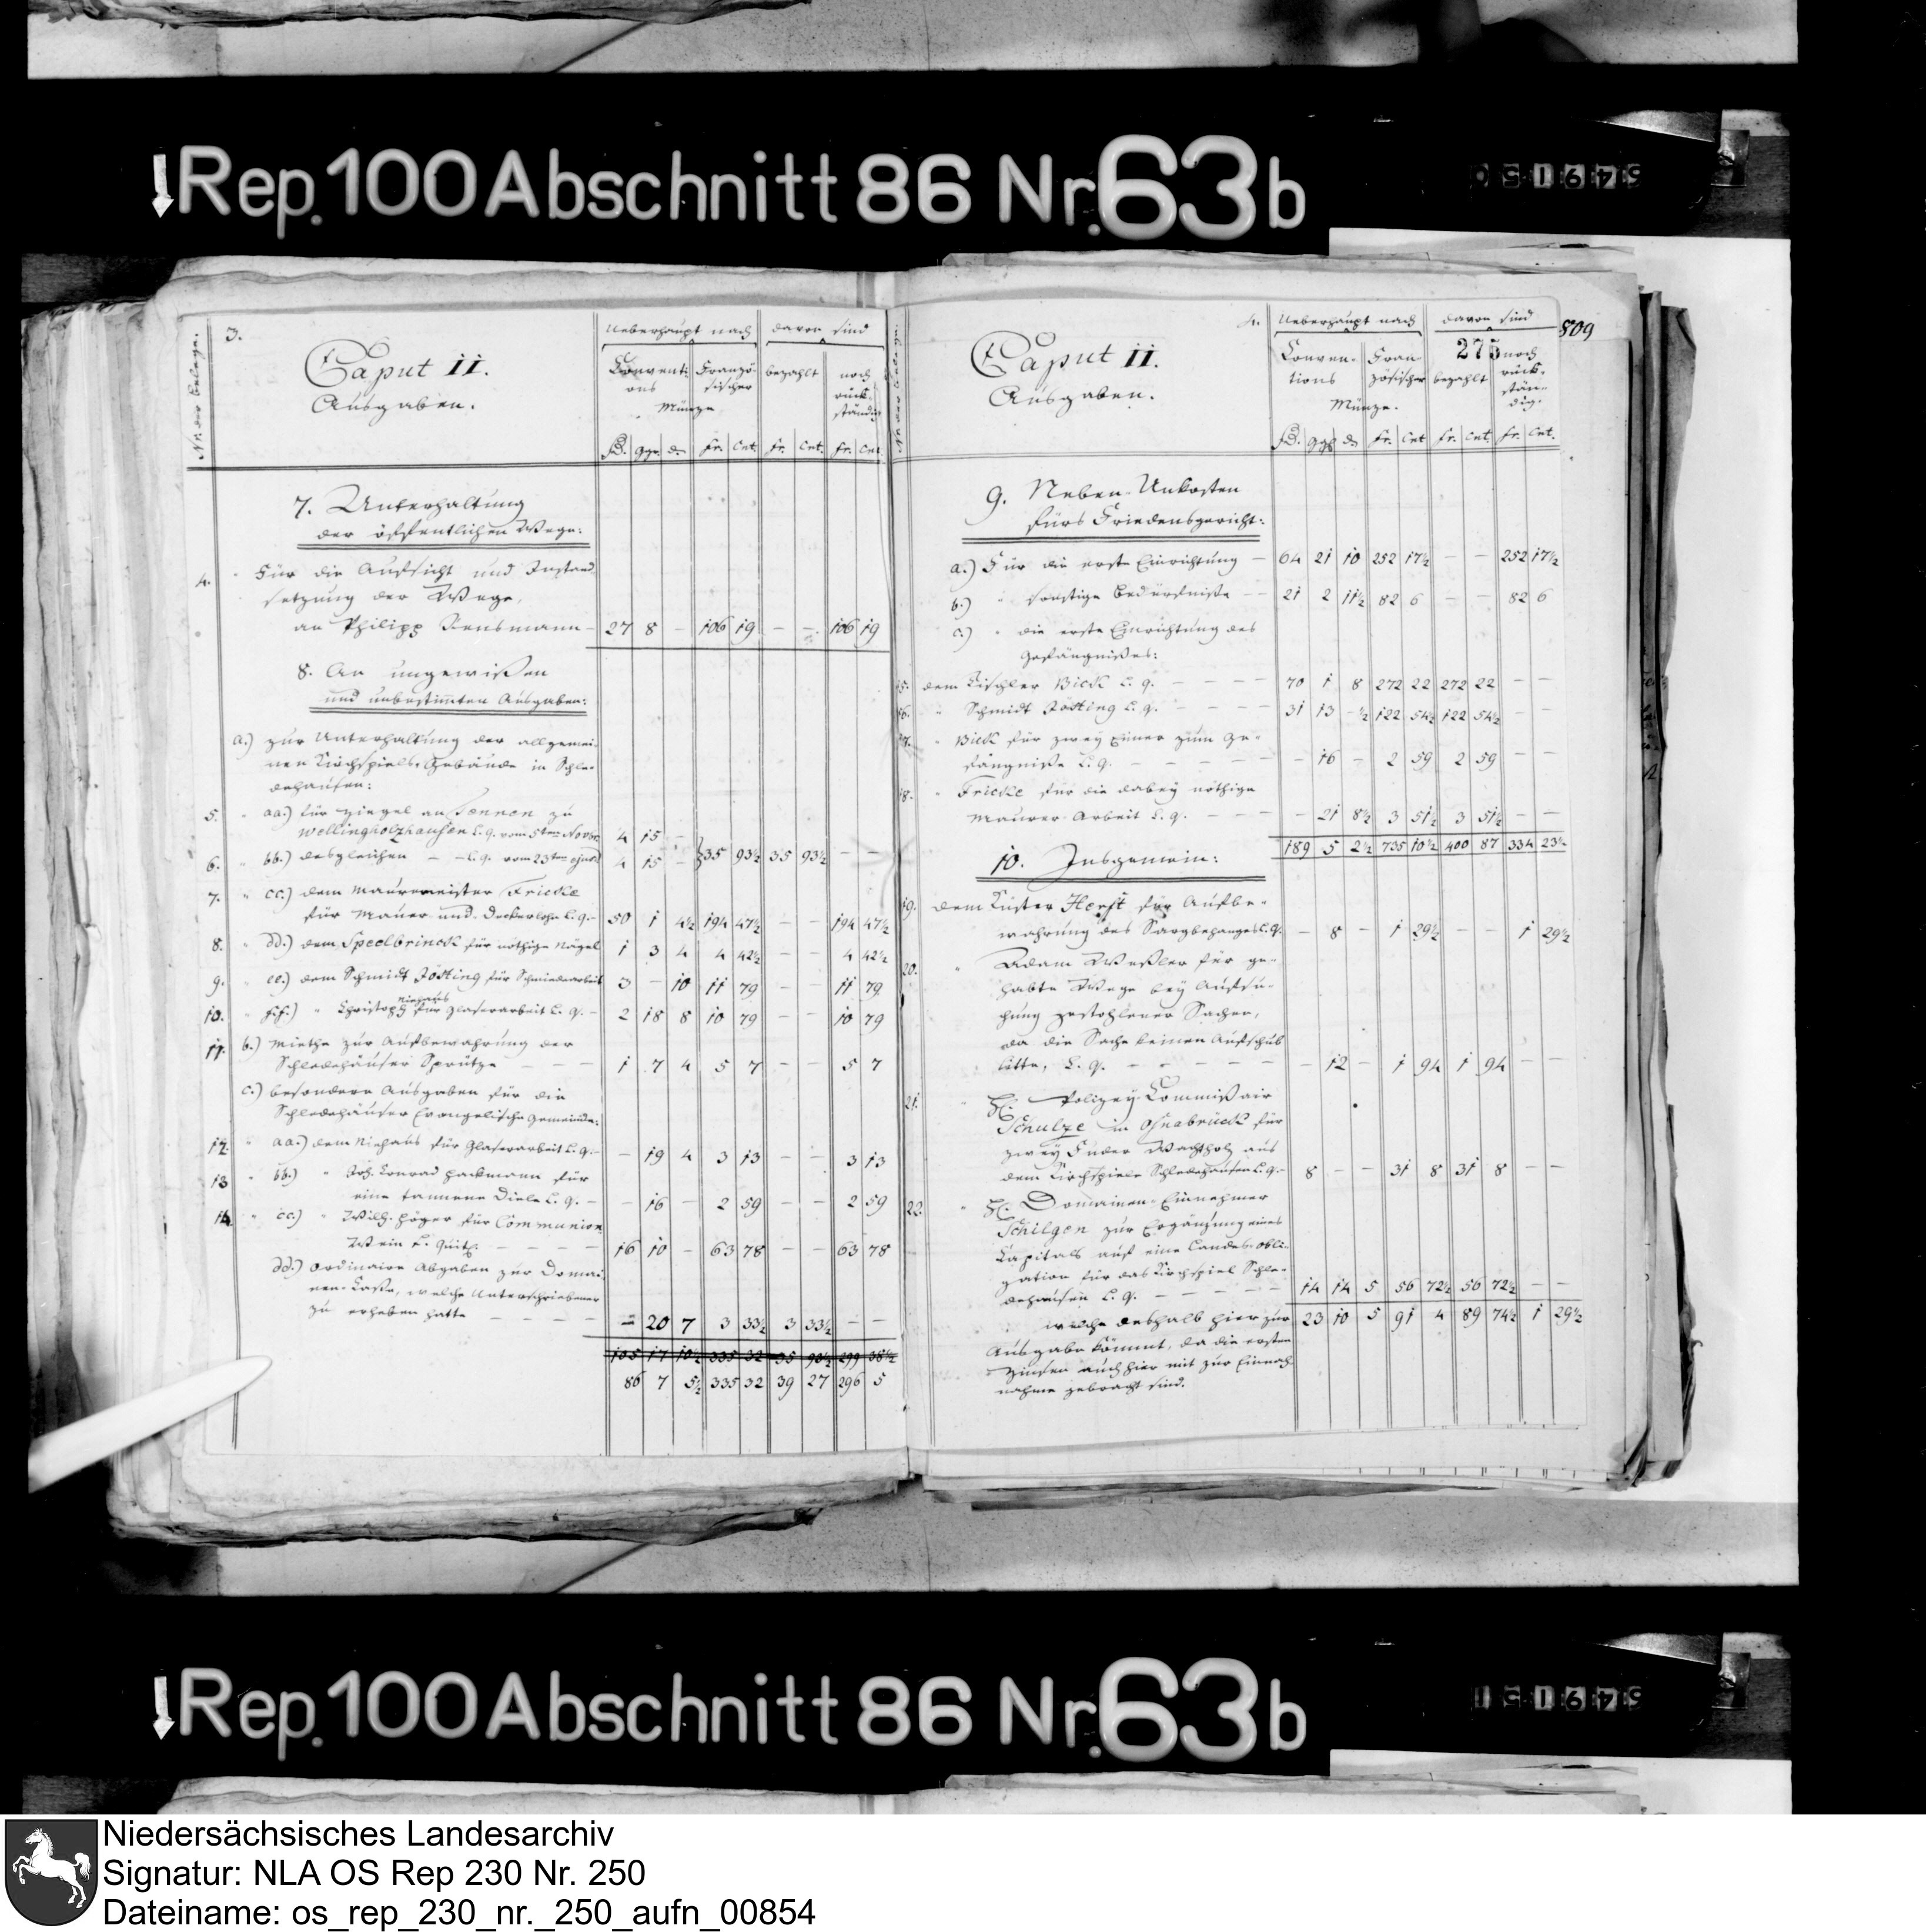 Rep. 100 Abschnitt 86 Nr. 63 b
3.
No. der Belege.
Caput II.
Ausgaben.
Ueberhaupt nach
davon sind
Conventions
Französischer
Münze
bezahlt
noch rückständig
ggr. d. fr. cnt. fr. cnt. fr. cnt.
7. Unterhaltung
der öffentlichen Wege:
4. Für die Aufsicht und Instand
setzung der Wege,
an Philipp Rensmann 27 8 – 106 19 – – 106 19
8. An ungewißen
und unbestimmten Ausgaben:
a.) zur Unterhaltung der allgemei-
nen Kirchspiels-Gebäude in Schle-
dehausen:
5. " aa.) für Ziegel an Tennen zu
Wellingholzhausen l. q. vom 5ten Novbr. 4 15 –
6. " bb.) desgleichen – l. q. vom 23ten 4 15 – 35 93½ 35 93½ – –
7. " cc.) dem Maurermeister Fricke
für Mauer und Deckerlohn l. q. – 50 1 4½ 194 47½ – – 194 47½
8. " dd.) dem Speelbrinck für nöthige Nägel 1 3 4 4 42½ – – 4 42½
9. " ee.) dem Schmidt Jösting für Schmiedearbeit 3 – 10 11 79 – – 11 79
10. " ff.) " Christoph Niehaus für Glaserarbeit l. q. – 2 18 8 10 79 – – 10 79
11. b.) Miethe zur Aufbewahrung der
Schledehäuser Sprütze – – – 1 7 4 5 7 – – 5 7
c.) besondere Ausgaben für die
Schledehäuser Evangelische Gemeinde:
12. " aa.) dem Niehaus für Glaserarbeit l. q. – – 19 4 3 13 – – 3 13
13 " bb.) " Joh. Conrad Hackmann für
eine tannene Diele l. q. – – 16 – 2 59 – – 2 59
14. " cc.) " Wilh. Höger für Communion
Wein l. Quit. – – – – 16 10 – 63 78 – – 63 78
dd.) ordinaire Abgaben zur Domai-
nen-Casse, welche Unterschriebener
zu erheben hatte – – – – – 20 7 3 33½ 3 33½ – –
105 17 10½ 335 32 35 93½ 299 38½
86 7 5½ 335 32 39 27 296 5
4.
809
275
No. der Belege.
Caput II.
Ausgaben.
Ueberhaupt nach
davon sind
Conven-
tions
Fran-
zösischer
Münze.
bezahlt
noch
rück-
stän-
dig.
ggr d. fr. cnt fr. cnt. fr. cnt.
9. Neben-Unkosten
fürs Friedensgericht:
a.) Für die erste Einrichtung – 64 21 10 252 17½ – – 252 17½
b.) " sonstige Bedürfniße – – 21 2 11½ 82 6 – – 82 6
c.) " die erste Einrichtung des
Gefängnißes:
15. dem Tischler Bick l. q. – – – – 70 1 8 272 22 272 22 – –
16. " Schmidt Jösting l. q. – – – – 31 13 –½ 122 54½ 122 54½ – –
17. " Bick für zwey Eimer zum Ge-
fängniße l. q. – – – – – – 16 – 2 59 2 59 – –
18. " Fricke für die dabey nöthige
Maurer-Arbeit l. q. – – – – 21 8½ 3 51½ 3 51½ – –
189 5 2½ 735 10½ 400 87 334 23½
10. Insgemein:
19. dem Küster Herft für Aufbe-
wahrung des Sargbehanges l. q. – 8 – 1 29½ – – 1 29½
20. " Adam Weßler für ge-
habte Wege bey Aufsu-
chung gestohlener Sachen,
da die Sache keinen Aufschub
litte, l. q. – – – – – – 12 – 1 94 1 94 – –
21. " H. Polizey-Commißair
Schulze in Osnabrück für
zwey Fuder Wachtholz aus
dem Kirchspiele Schledehausen l. q. – 8 – – 31 8 31 8 – –
22. " H. Domainen-Einnehmer
Schilgen zur Ergänzung eines
Kapitals auf eine Landes-obli-
gation für das Kirchspiel Schle-
dehausen l. q. – – – – – 14 14 5 56 72½ 56 72½ – –
23 10 5 91 4 89 74½ 1 29½
welche deshalb hier zur
Ausgabe kömmt, da die ersten
Zinsen auch hier mit zur Einnah-
nahme gebracht sind.
Rep. 100 Abschnitt 86 Nr. 63 b
Niedersächsisches Landesarchiv
Signatur: NLA OS Rep 230 Nr. 250
Dateiname: os_rep_230_nr._250_aufn_00854